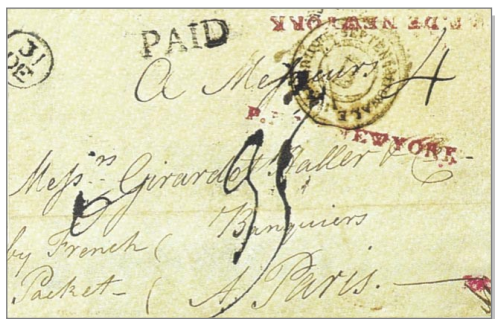 31
DE
PAID
DE NEWYORK
A Messieurs 4
P. NEWYORK
Mess.rs Girardot Haller & C.
by French ( Banquiers
Packet - ( A Paris.